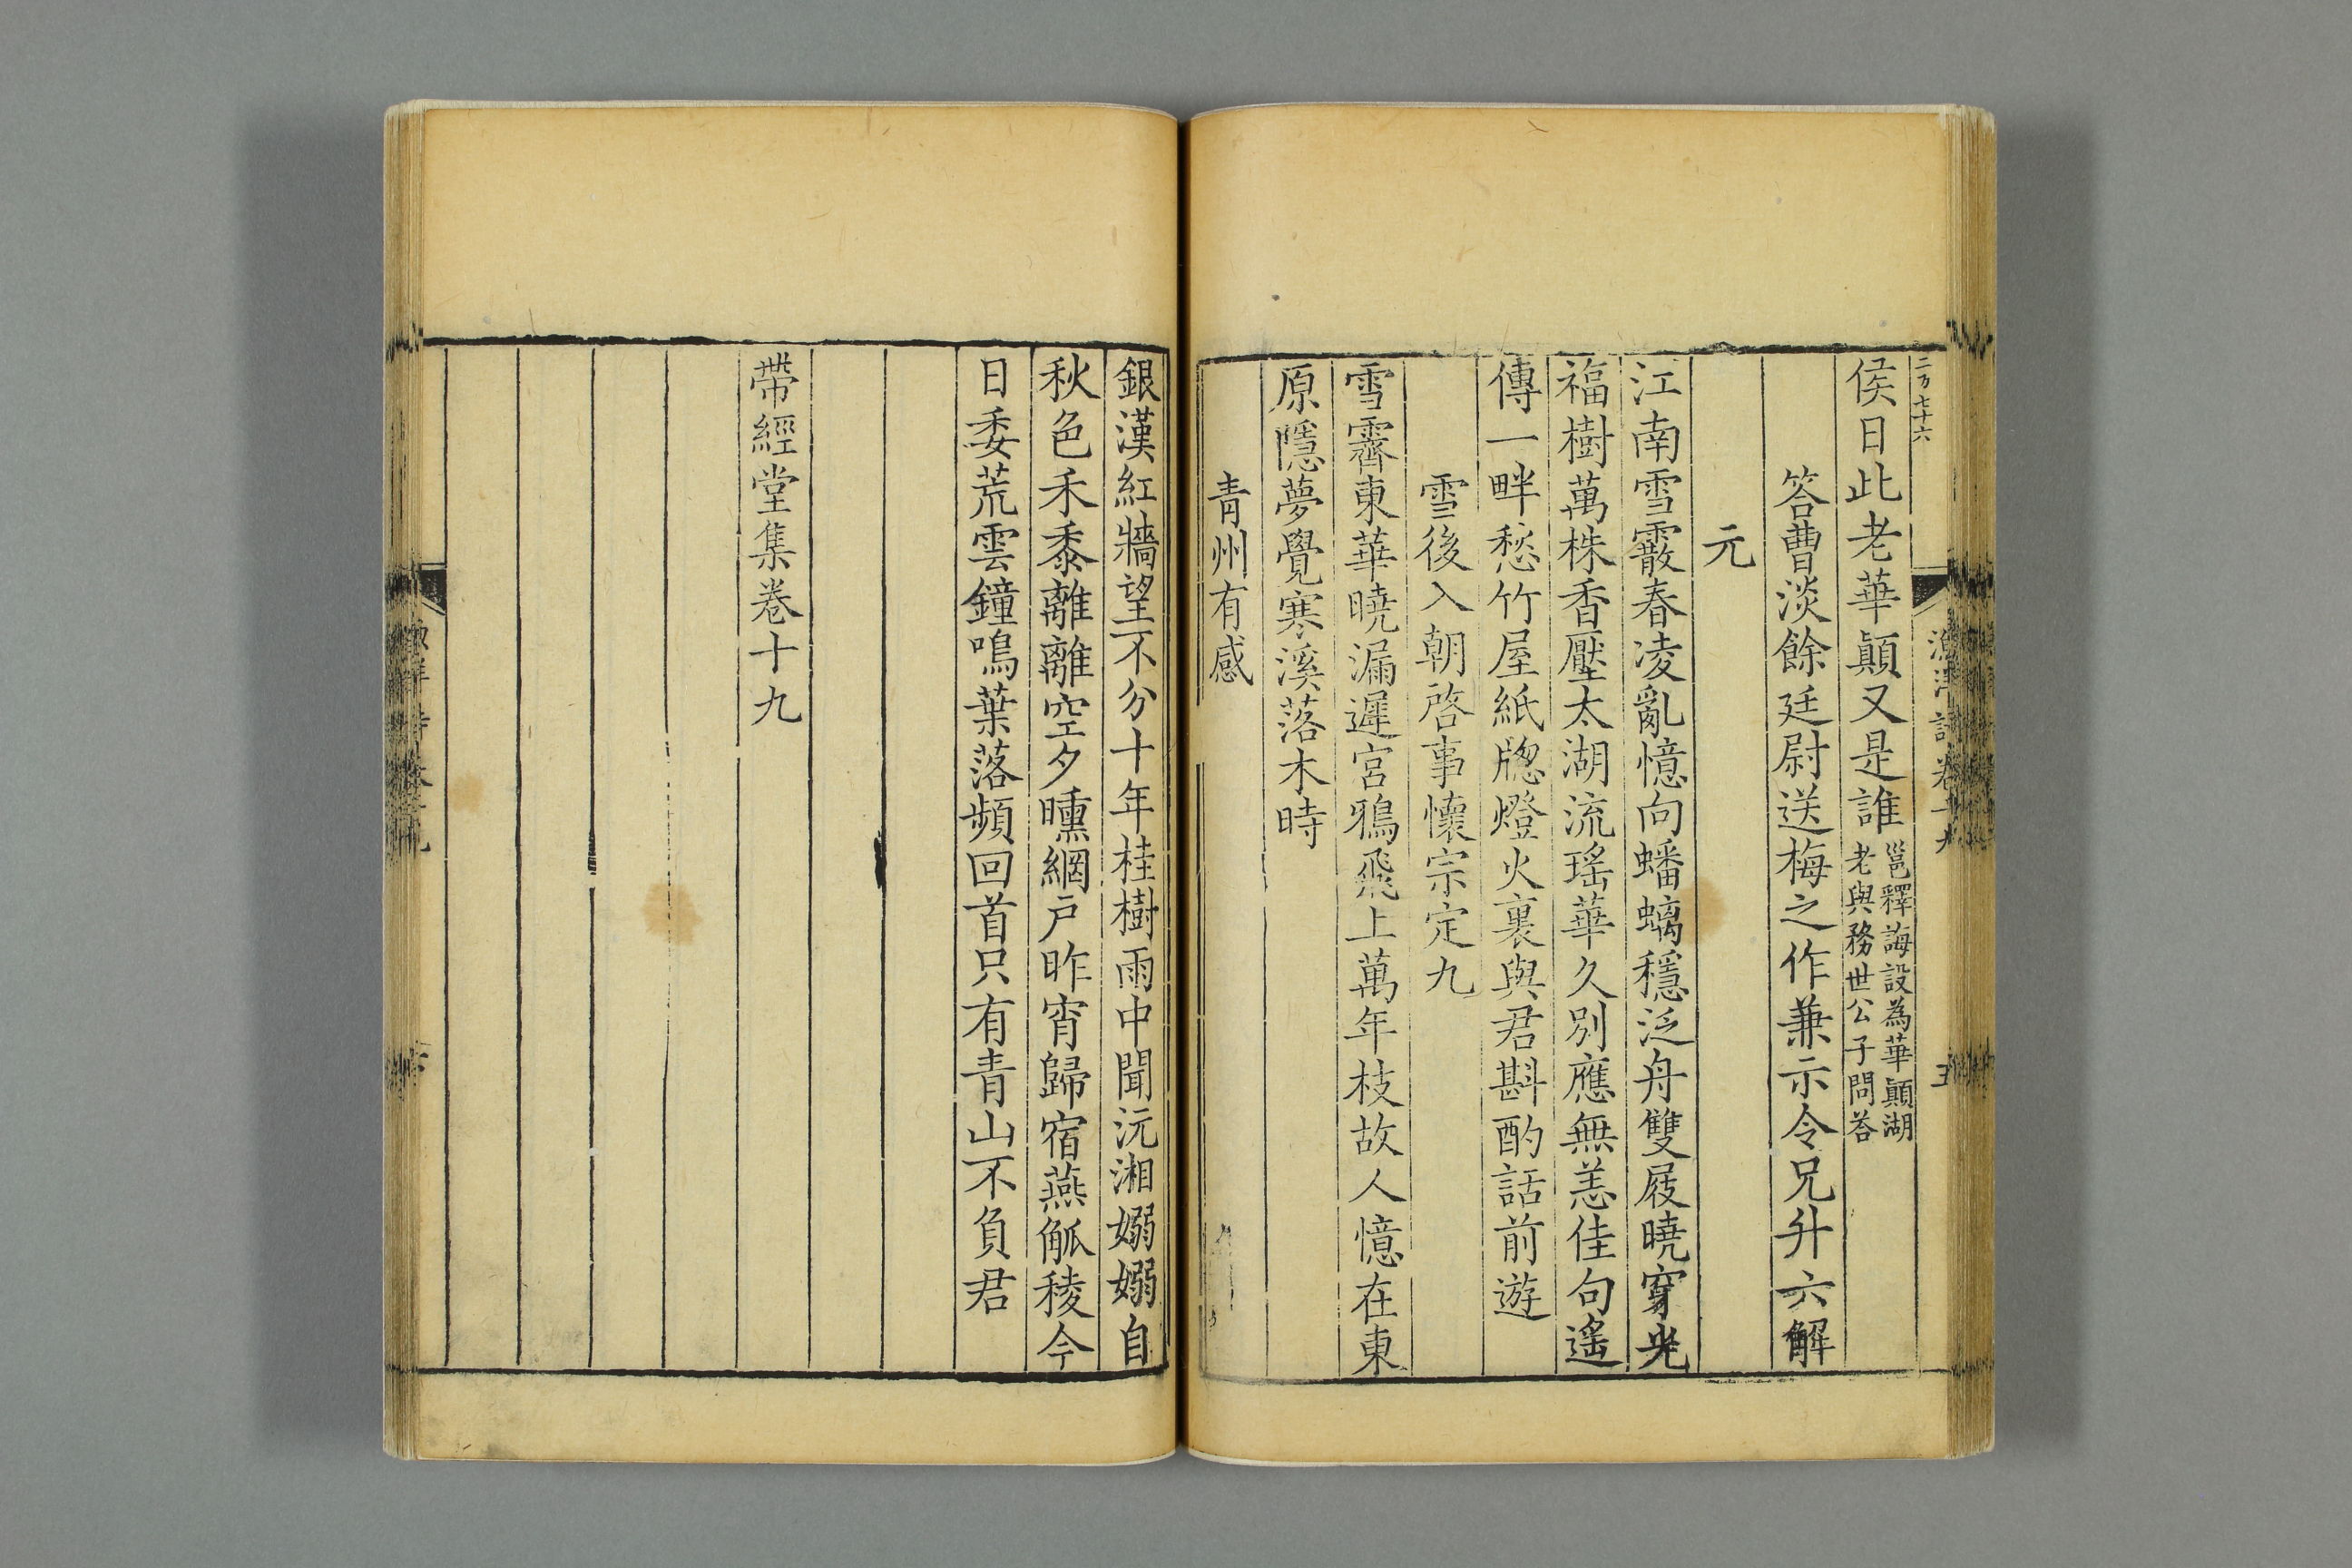 二百七十六
侯日此老華顛又是誰
邕釋誨設為華顛湖
老與務世公子問荅
答曹淡餘廷尉送梅之作兼示令兄升六解
元
江南雪霰春凌亂憶向蟠螭穩泛舟雙屐曉穿光
福樹萬株香壓太湖流瑤華久別應無恙佳句遙
傳一畔愁竹屋紙牎燈火裏與君斟酌話前遊
雪後入朝啓事懷宗定九
雪霽東華曉漏遲宮鴉飛上萬年枝故人憶在東
原隱夢覺寒溪落木時
青州有感
銀漢紅牆望不分十年桂樹雨中聞沅湘嫋嫋自
秋色禾黍離離空夕曛網戶昨宵歸宿燕觚稜今
日委荒雲鐘鳴葉落頻回首只有青山不負君
帶經堂集卷十九